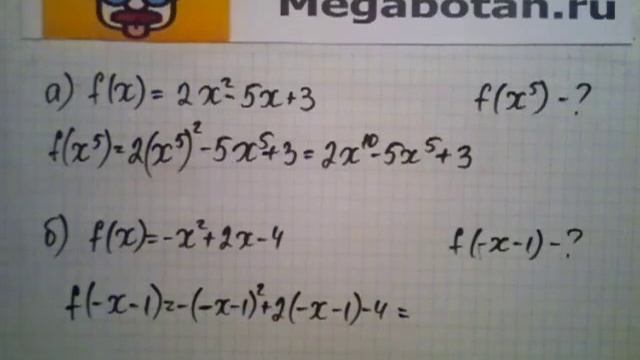 Megabotan.ru
а) f(x) = 2x² - 5x + 3 f(x⁵) - ?
f(x⁵) = 2(x⁵)² - 5x⁵ + 3 = 2x¹⁰ - 5x⁵ + 3
б) f(x) = -x² + 2x - 4 f(-x-1) - ?
f(-x-1) = -(-x-1)² + 2(-x-1) - 4 =